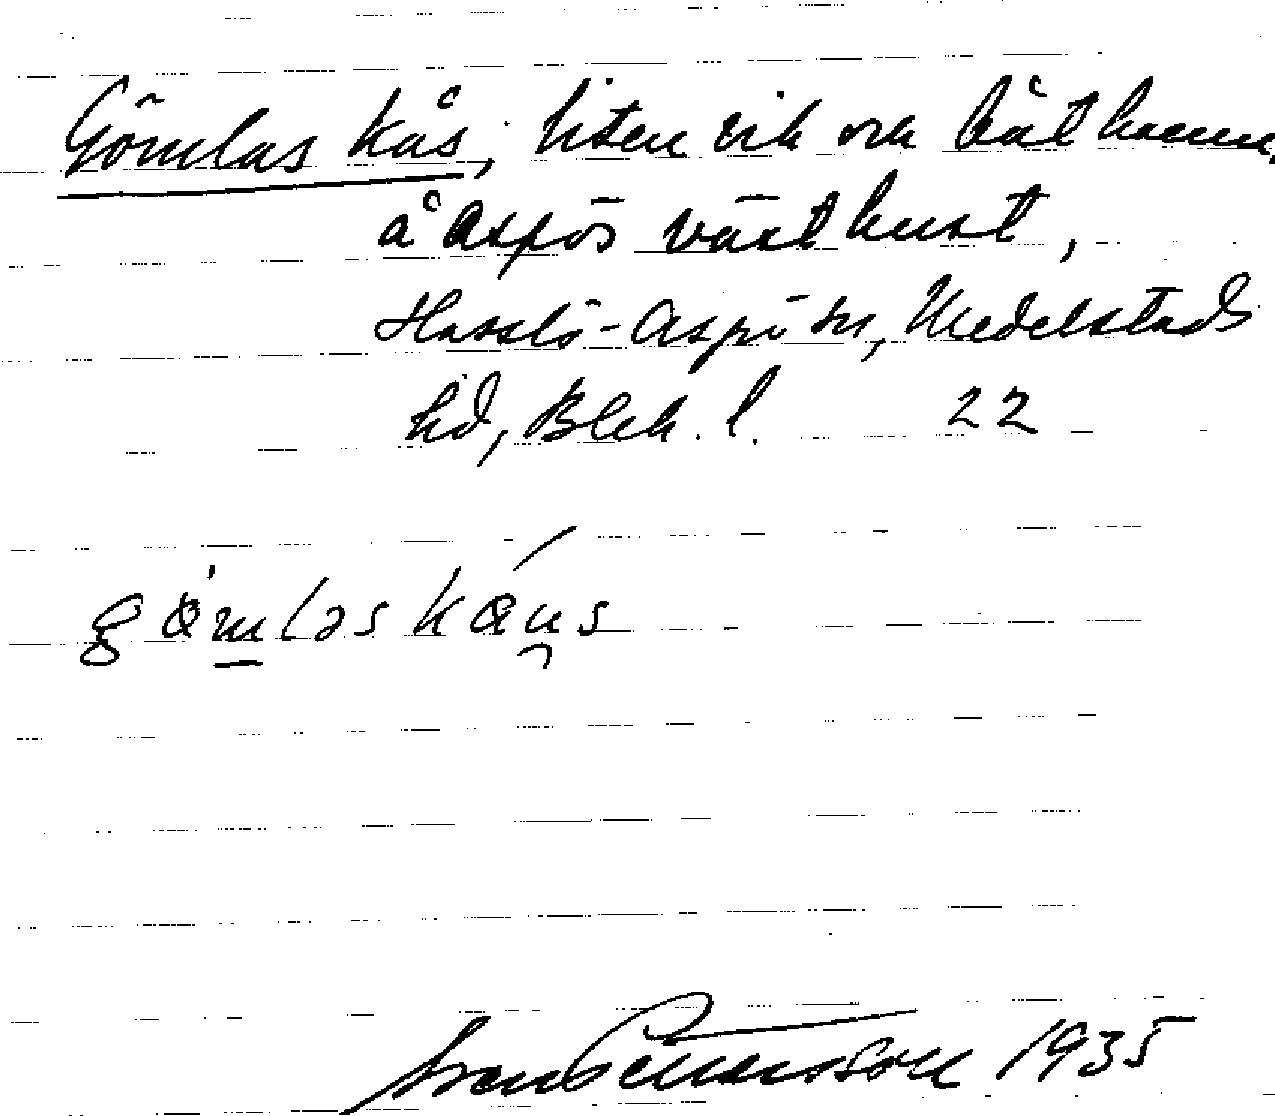 Gömlas kås, liten vik och båthamn
å Aspös västkust,
Hasslö-Aspö sn, Medelstads
hd, Blek. l. 22
gömləs káu̯s
Sven Benson 1935